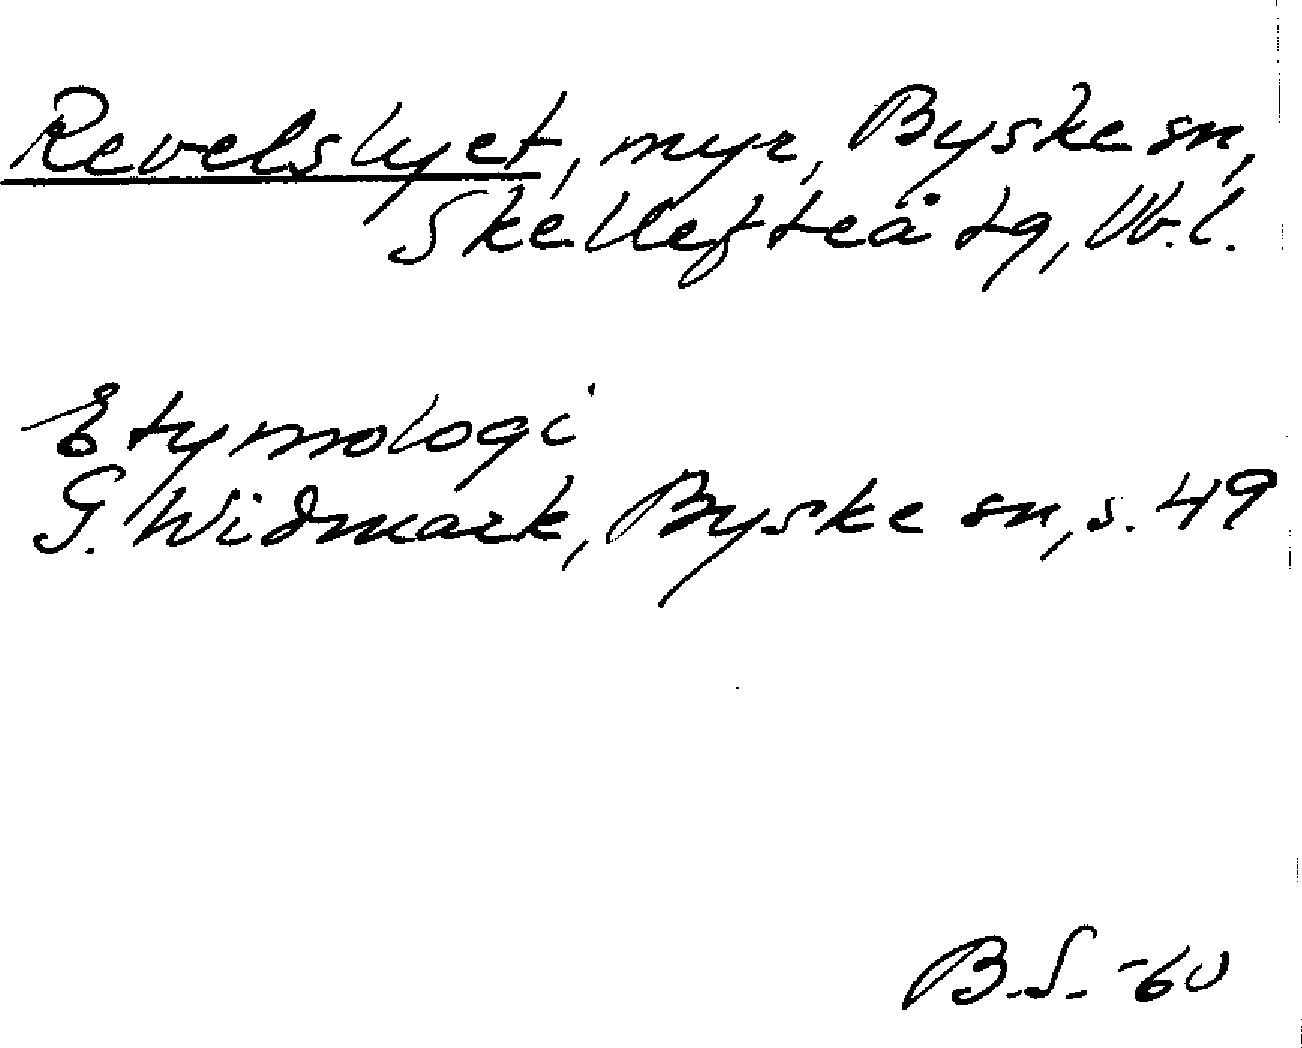 Revelslyet, myr, Byske sn,
Skellefteå tg, Vb.l.
Etymologi
G. Widmark, Byske sn, s. 49
B.S. -60